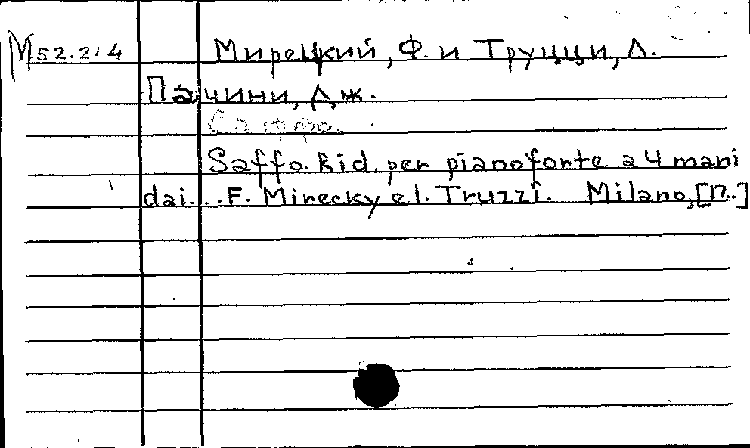 M52.2.4 Мирецкий, Ф. и Труцци, Л.
Пачини, Дж.
Саффо.
Saffo. Rid. per pianoforte a 4 mani
dai... F. Mirecky e L. Truzzi. Milano, [R.]